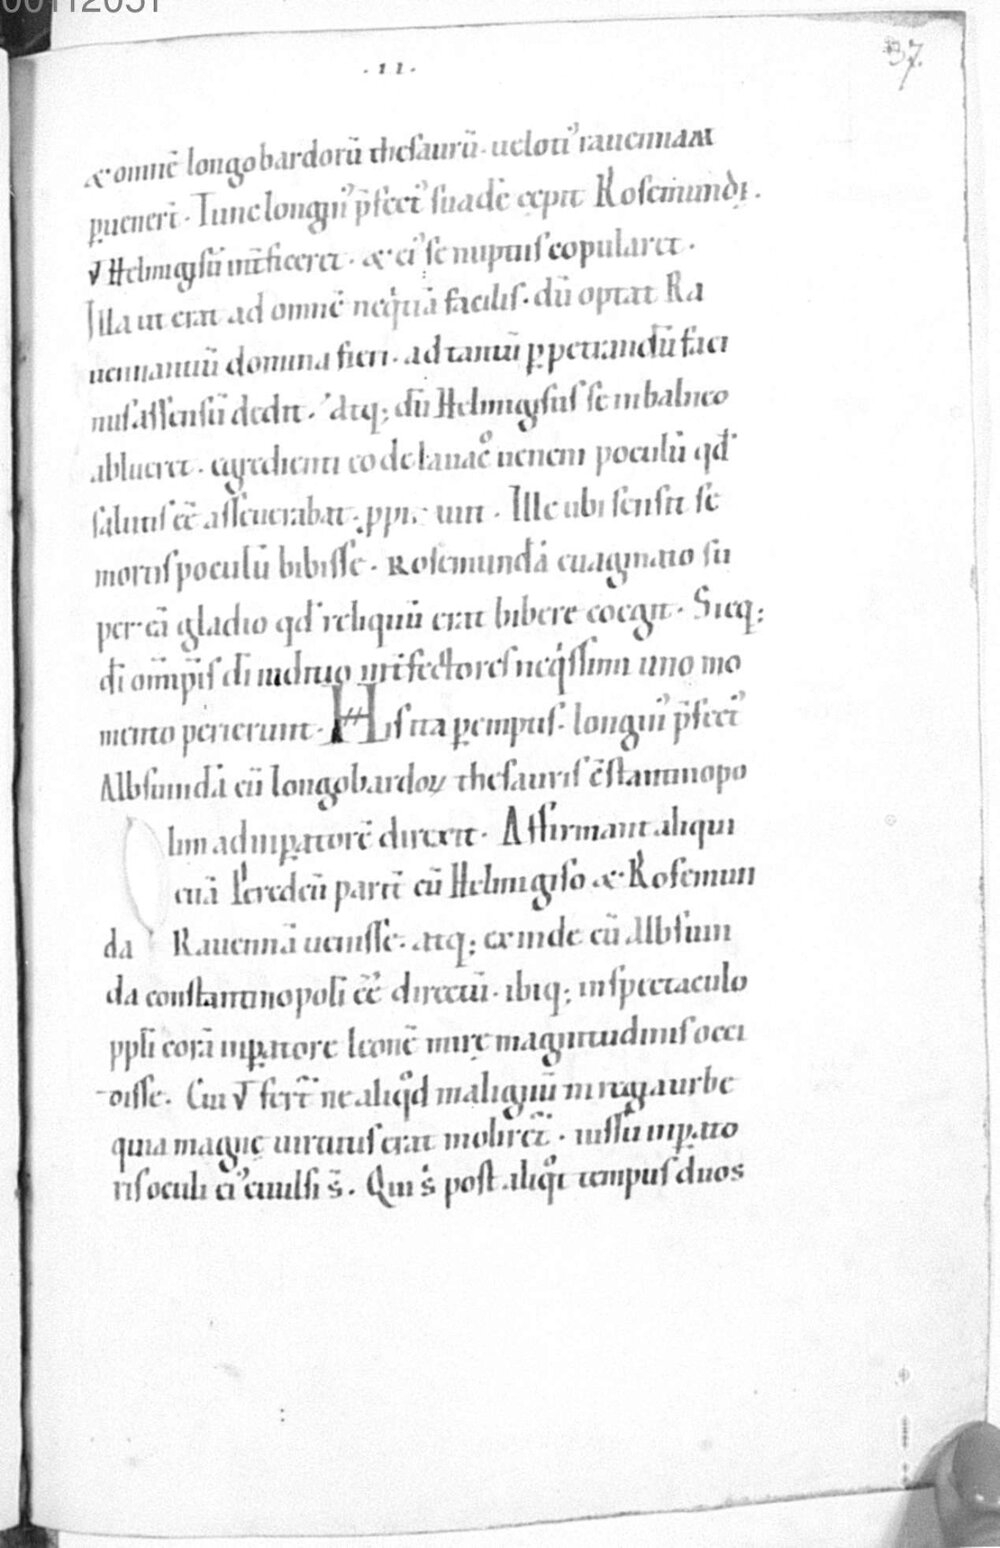 00112051
· 11 ·
37
& omnē longobardorū thesaurū · ueloci᷒ rauennam
ꝑuenerт̄ · Tunc longin᷒ p̄fect᷒ suadē cepit Rosemundę ·
ꝟ Helmigisū int̄ficeret · & ei᷒ se nuptiis copularet ·
Illa ut erat ad omnē neqͥtiā facilis · dū optat Ra
uennatiū domina fieri · ad tantū ꝑpetrandū faci
nus assensū dedit · Atq; dū Helmigisus se in balneo
ablueret · egredienti eo de lauacͦ ueneni poculū qđ
salutis eē asseuerabat · ꝓpi uit · Ille ubi sensit se
mortis poculū bibisse · Rosemundā euaginato su
per eā gladio qđ reliquū erat bibere coegit · Sicq;
dī om̄ip̄is dī iudicio int̄fectores neqͥssimi uno mo
mento perierunt · His ita ꝑemptis · longin᷒ p̄fect᷒
Albsuindā cū longobardoꝝ thesauris c̄stantinopo
lim ad inꝑatorē direxit · Affirmant aliqui
etiā Peredeū parit̄ cū Helmigiso & Rosemun
da Rauennā uenisse · atq; exinde cū Albsuin
da constantinopolī eē directū · ibiq; in spectaculo
ppli corā inꝑatore leonē mirę magnitudinis occi
disse · Cui ꝟ fert̄ ne aliqͥd malignū in regia urbe
quia magnę uirtutis erat moliret̄ · iussu inꝑato
ris oculi ei᷒ euulsi s̄ · Qui s̄ post aliqͦt tempus duos